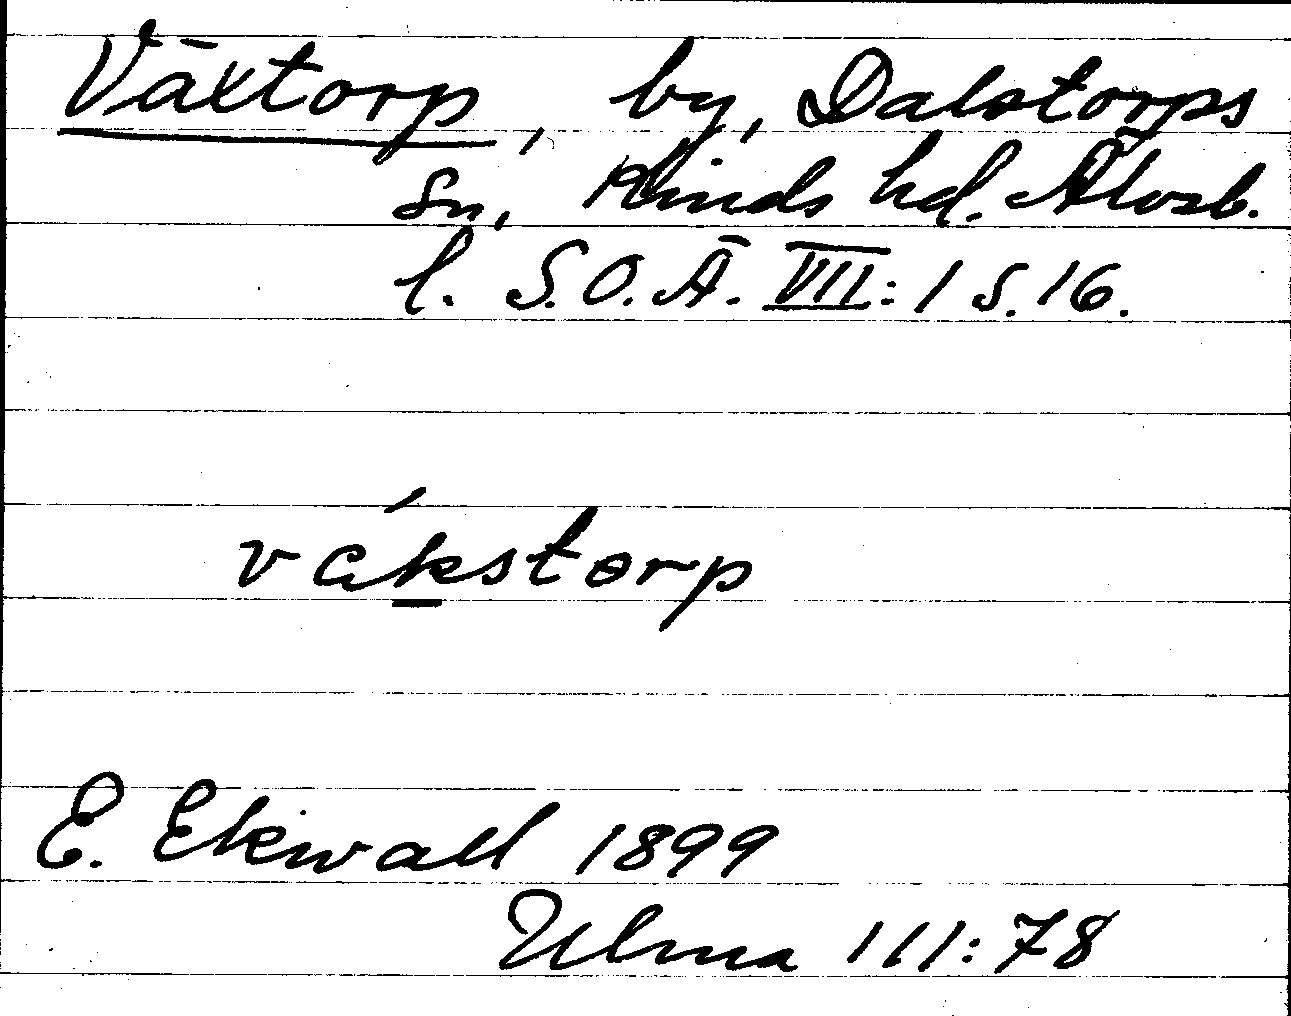 Växtorp, by, Dalstorps
sn, Kinds hd. Älvsb.
l. S.O.Ä. VII: 1 S. 16.
väkstorp
E. Ekwall 1899
Ulma 111:78